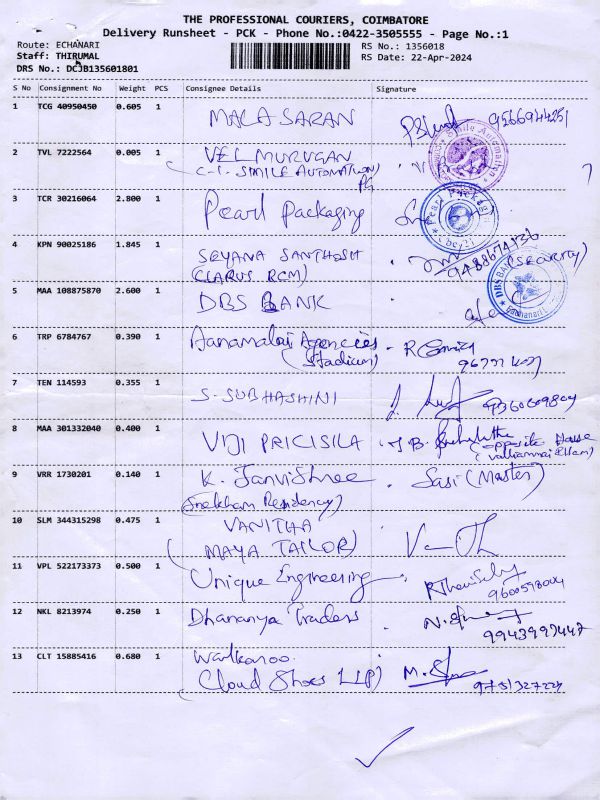 THE PROFESSIONAL COURIERS, COIMBATORE
Delivery Runsheet - PCK - Phone No.:0422-3505555 - Page No.:1
Route: ECHANARI
RS No.: 1356018
Staff: THIRUMAL
RS Date: 22-Apr-2024
DRS No.: DCJB135601801
S No Consignment No Weight PCS Consignee Details Signature
1 TCG 40950450 0.605 1 MALA SARAN
2 TVL 7222564 0.005 1 VEL MURUGAN
SIMILE AUTOMATION)
3 TCR 30216064 2.800 1 Pearl Packaging
4 KPN 90025186 1.845 1 SEYANA SANTHOSH
(CLARUS RCM)
5 MAA 108875870 2.600 1 DBS BANK
6 TRP 6784767 0.390 1 Aanamalai Agencies
(Stadium)
7 TEN 114593 0.355 1 S. SUBHASHINI
8 MAA 301332040 0.400 1 VIJI PRICISILA
(opposite House
9 VRR 1730201 0.140 1 K. JanviShree Sasi (Master)
Residency)
10 SLM 344315298 0.475 1 VANITHA
(MAYA TAILOR)
11 VPL 522173373 0.500 1 Unique Engineering
12 NKL 8213974 0.250 1 Dhananya Traders
9943997447
13 CLT 15885416 0.680 1 Walkaroo
(Cloud Shoes LLP)